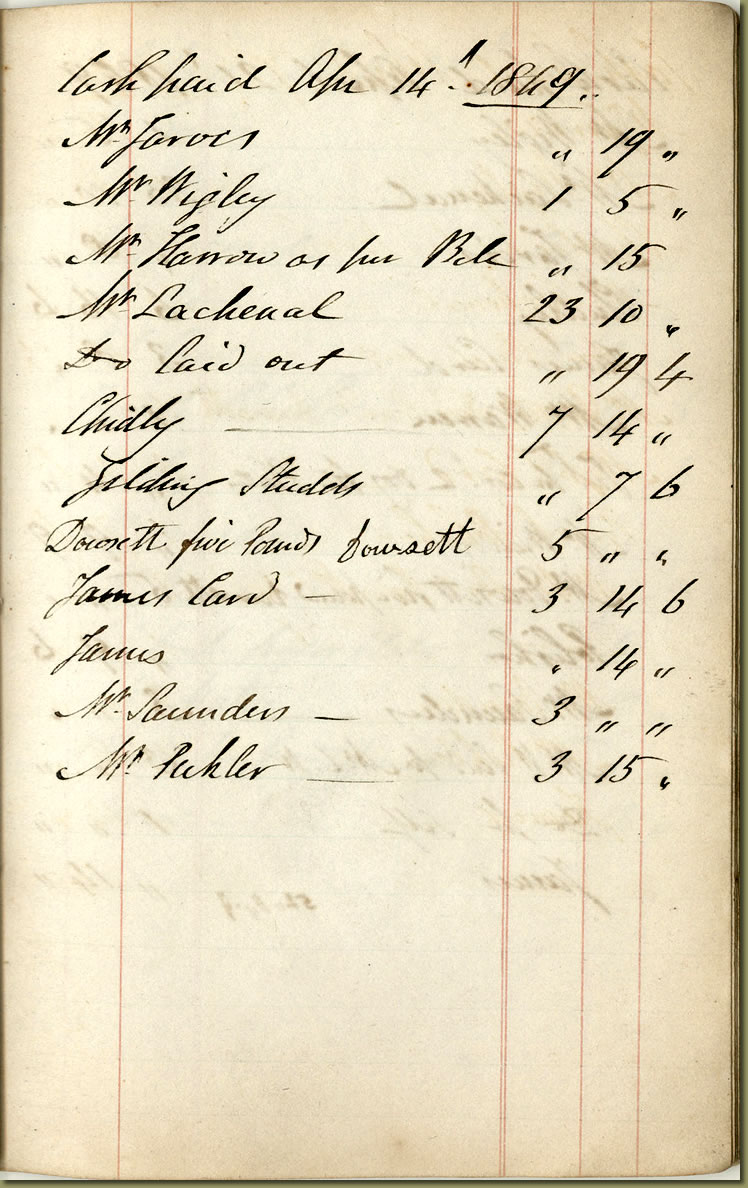 Cash paid Apr 14th 1849.
Mr Jarvis " 19 "
Mr Wigley 1 5 "
Mr Harrow as per Bill " 15
Mr Lachenal 23 10 "
Do laid out " 19 4
Chidly 7 14 "
Gilding Studds " 7 6
Dowsett five Pounds Dowsett 5 " "
James Card 3 14 6
James " 14 "
Mr Saunders — 3 " "
Mr Pichler 3 15 "